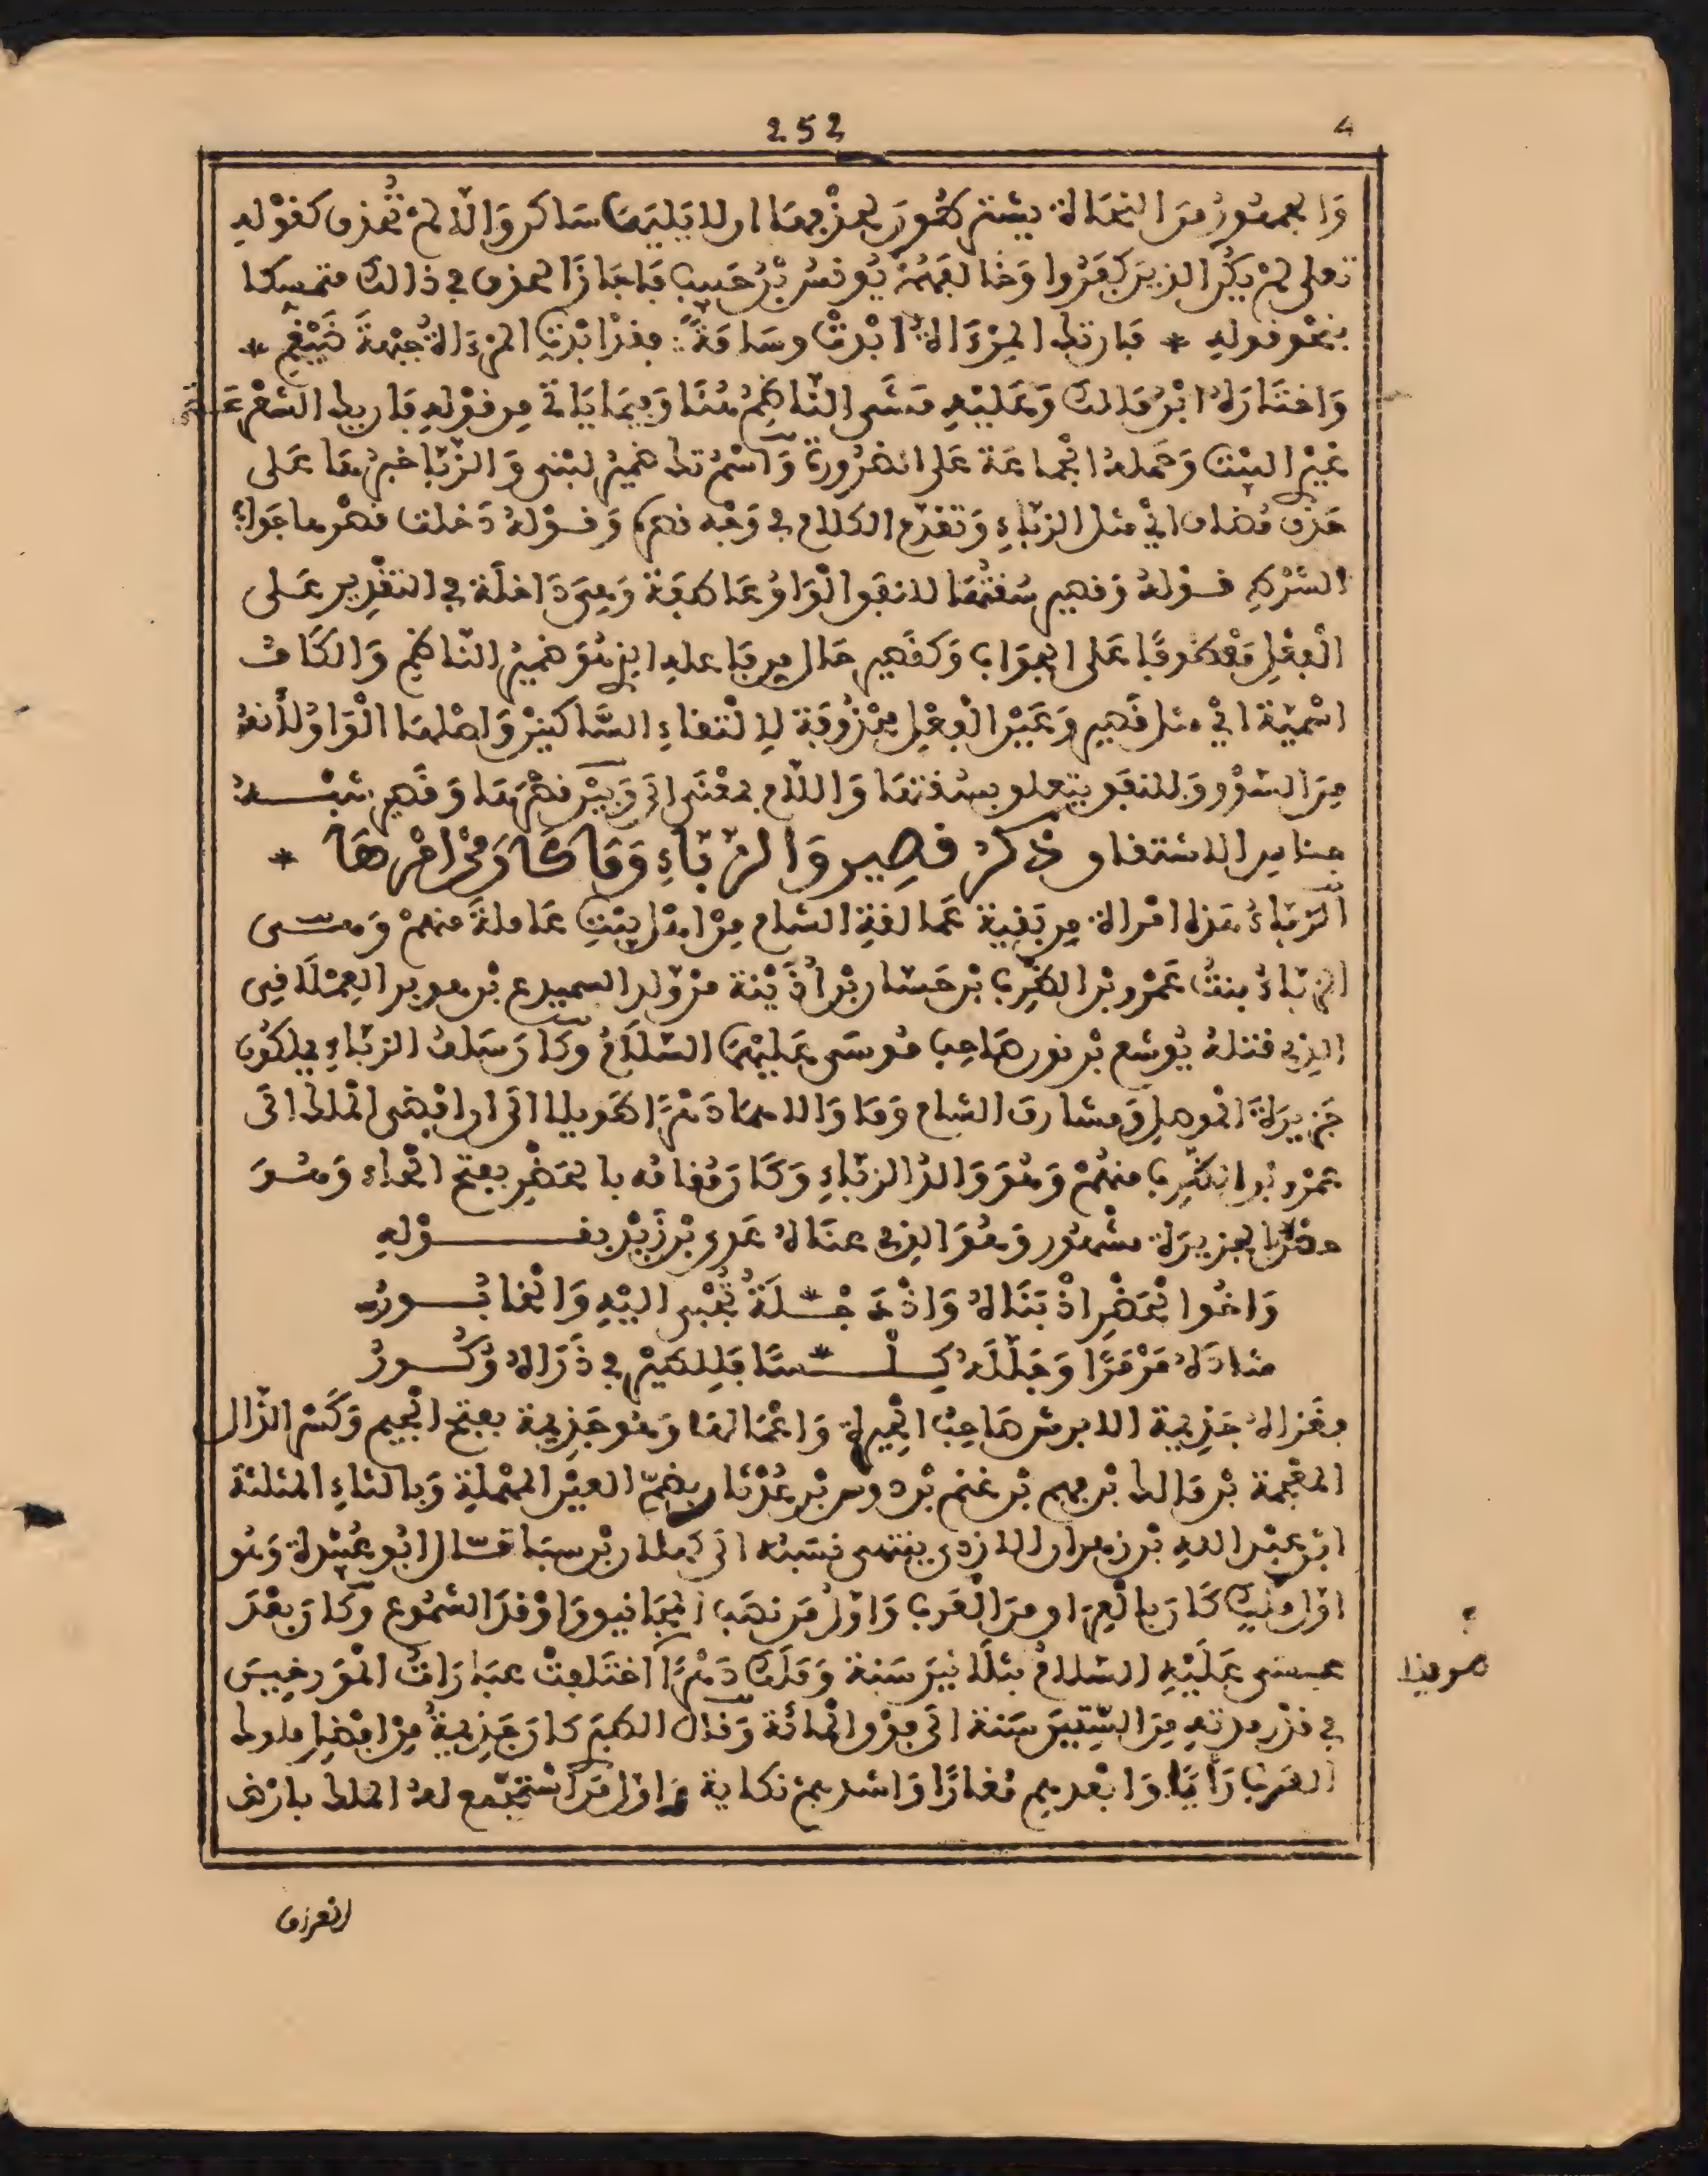 252
4
وَالجمهُورُ مِنَ النحَاةِ يشترطُونَ لحذْفِهَا ان لا يَلِيَهَا سَاكن وَالّا لمْ تُحذف كقوْله
تعلى لمْ يَكُنِ الذينَ كفَرُوا وَخَالفهُمْ يُونسُ بْنُ حَبيبٍ فَاجَازَ الحذف في ذالك متمسكا
بنحو قوله * فان تك المِرْءَاةُ ابْدتْ وسَامَةً ∴ فقدْ ابْدتِ المِرْءَاةُ جبْهةَ ضَيْغمِ *
وَاختَارَهُ ابْنُ مَالك وَعَليْهِ مَشَى النّاظِمُ هُنَا وَفِيمَا يَاتي مِن قوْلهِ فَان يك الشعْرُ عَصَتني
غيْر البيْت وَحَملهُ الجماعَة على الضرُورة وَاسْمُ تك ضميرُ لبْنى وَالزّبّا خبرُهَا عَلى
حَذف مُضاف ايْ مثل الزبّاءِ وَتقدّم الكلام في وَجْه نصرِ وَقوْلهُ دَخلت قصْرها جَوابُ
الشرْطِ قوْلهُ وَقصير سُقتُهَا للنفي الْوَاوُ عَاطفة وَهِيَ دَاخلَة في التقْدِير عَلى
الْفِعْل مَعْطُوفًا عَلى الجوَاب وَكقَصِير حَال من فاعله الذي هُوَ ضميرُ النّاظِم وَالكَافُ
اسْميَّة ايْ مثل قصِير وَعَيْن الْفِعْل محْذُوفة لِالْتقاءِ السَّاكنيْن وَاصْلهَا الْوَاوُ لأنهُ
مِنَ السَّوْق وَللنفي يتعلق بسُقتهَا وَاللام بمعْنَى الى وَبيْن قصْرهَا وَقصِير شبْـــهُ
جناس الاشتقاق ذكْر قصِير وَالزبّاءِ وَمَا كانَ مِنْ امْرِهَا *
الزّبّاءُ هَذه امْرَاة مِن بَقية عمالقةِ الشام مِنْ اهْل بيْتِ عَاملةَ منهمْ وَهـــي
الزبّاءُ بنتُ عَمْرو بْن الظرِب بْن حَسّان بْن أُذَيْنة منْ وَلد السميدع بْن هوبر العِمْلَاقِي
الذي قتلهُ يُوشع بْن نون صَاحب مُوسَى عَليْهمَا السّلَامُ وكَان سَلفُ الزبّاءِ يملكُون
جَزيرَةَ الموصل وَمشارف الشام وَمَا وَالاهمَا دَهْرًا طَويلا الى ان افضى الملك الى
عمْرو بْن الظرِب منهُمْ وَهُوَ وَالدُ الزبّاءِ وَكَان مُقامُه بالحَضْرِ بفتح الحاء وَهُـــوَ
حصْن بالجزيرَة مشْهُور وَهُوَ الذي عنَاهُ عَدي بْن زَيْد بقـــــوْلهِ
وَاخُو الحَضْرِ اذْ بَنَاهُ وَاذْ دجْـــلَةُ تُجْبى اليْهِ وَالخابُـــورُ
شادَهُ مَرْمَرًا وَجَلّلَهُ كِلْـــسًا فَلِلطيْرِ في ذَرَاهُ وُكُـــورُ
فغَزاهُ جَذِيمة الابرش صَاحبُ الحِيرة وَاعْمَالهَا وَهُو جَذِيمة بفتح الجيم وَكَسْر الذّال
المعْجمة بْن مَالك بْن فهم بْن غنم بْن دوس بْن عُدْثَان بضمّ العيْن المهْملةِ وَبالثاءِ المثلثة
ابْن عبْد الله بْن زهران الازدي ينتهي نسَبُه الى كهلان بْن سبَا قـــال ابُو عُبيْدة وَهُو
اوّل ملِك كَان بالعِرَاق مِنَ الْعَرب وَاوّلُ مَن نصَب المجَانيق وَاوْقدَ الشمُوع وَكَان بَعْدَ
عيسَى عَليْهِ السَّلامُ بثَلَاثينَ سَنة وَمَلَك دَهْرًا اختَلفتْ عبَارَاتُ المُؤَرخِينَ
في قدْر مدتهِ مِنَ السِّتينَ سَنة الى فوْق المائة وَقال الطبَري كَان جَذِيمةُ مِنْ افضَل ملوك
العَرب رَأيًا وَابْعدهم مُغارًا وَاشدهمْ نكاية وَاوّل مَن اسْتجْمع لهُ الملك بارْض
العراق